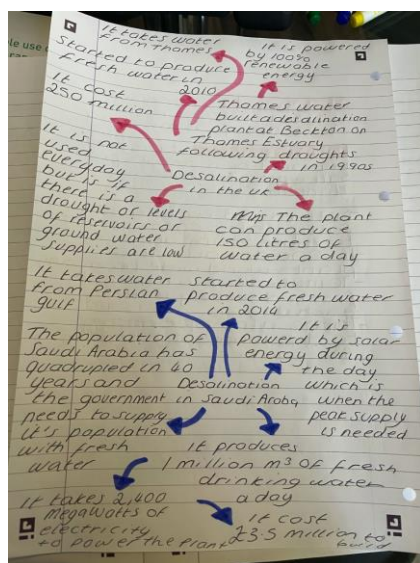 It takes water
from Thames
It is powered
by 100%
renewable
energy
Started to produce
fresh water in
2010
It cost
250 million
Thames water
built a desalination
plant at Beckton on
Thames Estuary
following droughts
in 1990s
It is not
used
everyday
but is if
there is a
drought or levels
of reservoirs or
ground water
supplies are low
Desalination
in the uk
The plant
can produce
150 litres of
water a day
It takes water
from Persian
gulf
started to
produce fresh water
in 2014
It is
powerd by solar
energy during
the day
which is
when the
peak supply
is needed
The population of
Saudi Arabia has
quadrupled in 40
years and
the government
needs to supply
it's population
with fresh
water
Desalination
in Saudi Araba
It produces
1 million m³ of fresh
drinking water
a day
It takes 2,400
megawatts of
electricity
to power the plant
It cost
£3.5 million to
build